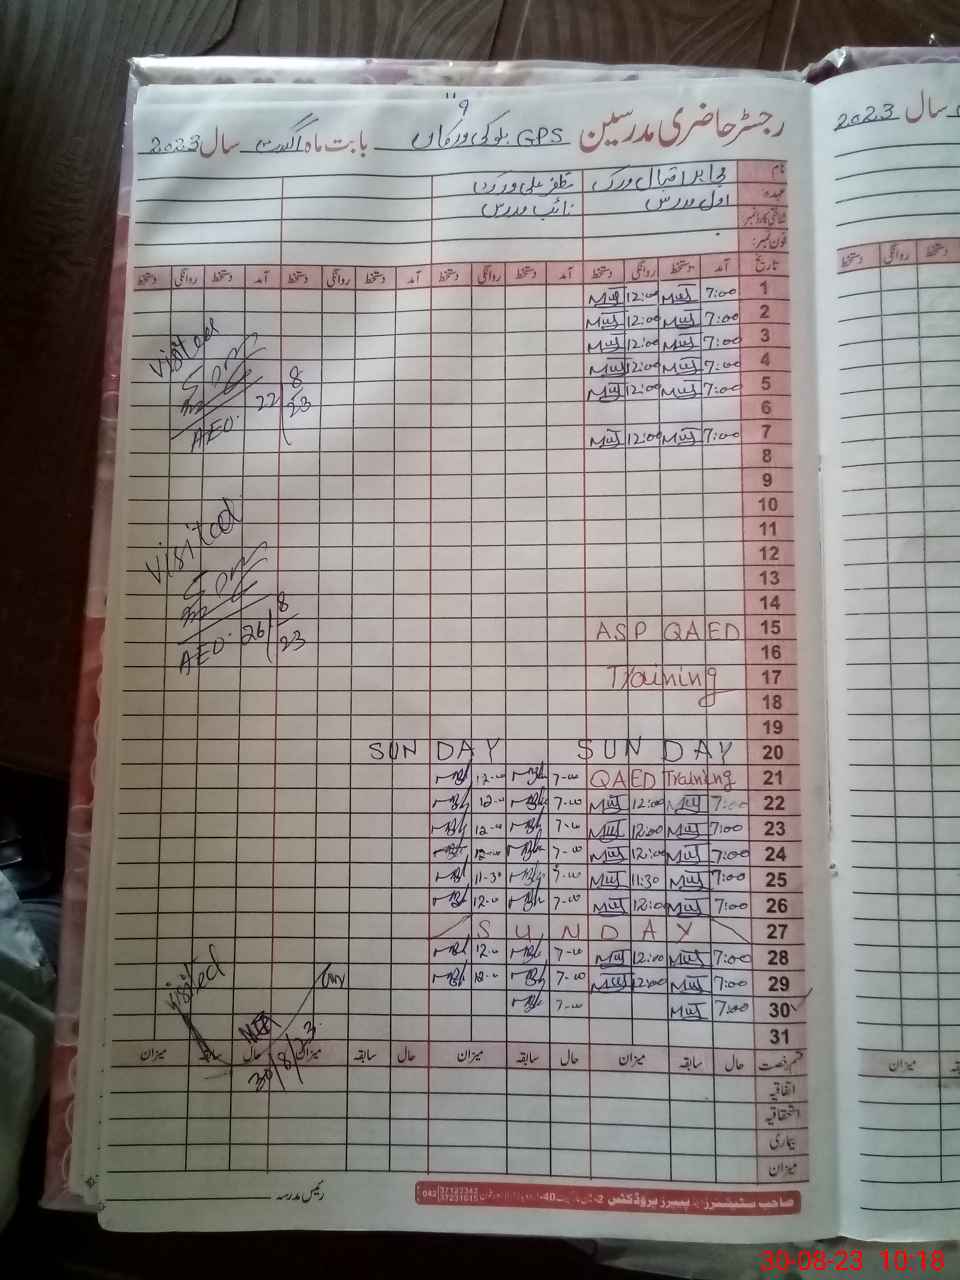 رجسٹر حاضری مدرسین GPS بابت ماہ اگست سال 2023
سال 2023
نام مظفر علی ورک
عہدہ اول مدرس نائب مدرس
شناختی کارڈ نمبر
فون نمبر:
تاریخ آمد دستخط روانگی دستخط آمد دستخط روانگی دستخط آمد دستخط روانگی دستخط آمد دستخط روانگی دستخط
دستخط روانگی دستخط
1 7:00 12:00
2 7:00 12:00
3 7:00 12:00
4 7:00 12:00
5 7:00 12:00
6
7 7:00 12:00
8
9
10
11
12
13
14
15 ASP QAED
16
17 Training
18
19
20 SUNDAY SUNDAY
21 QAED Training 7-00 12-00
22 7:00 12:00 7-00 12-00
23 7:00 12:00 7-00 12-00
24 7:00 12:00 7-00 12-00
25 7:00 11:30 7-00 11-30
26 7:00 12:00 7-00 12-00
27 SUNDAY
28 7:00 12:00 7-00 12-00
29 7:00 12:00 7-00 12-00
30 7:00 7-00
31
Visited
AEO. 22/8/23
Visited
AEO. 26/8/23
Visited
30/8/23
قسم رخصت حال سابقہ میزان حال سابقہ میزان حال سابقہ میزان حال سابقہ میزان
میزان
اتفاقیہ
استحقاقیہ
بیماری
میزان
رئیس مدرسہ
صاحب سٹیشنرز پیپرز پروڈکٹس
30-08-23 10:18